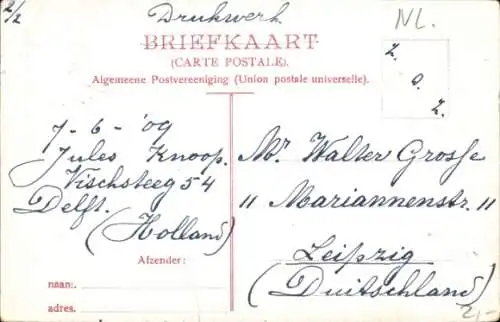 2/2
Drukwerk
NL.
BRIEFKAART
(CARTE POSTALE).
Algemeene Postvereeniging (Union postale universelle).
Z.
O.
Z.
7-6-'09
Jules Knoop.
Vischsteeg 54
Delft.
(Holland)
Afzender:
naam:
adres.
Mr. Walter Grosse
11 Mariannenstr. 11
Leipzig
(Duitschland)
2,-